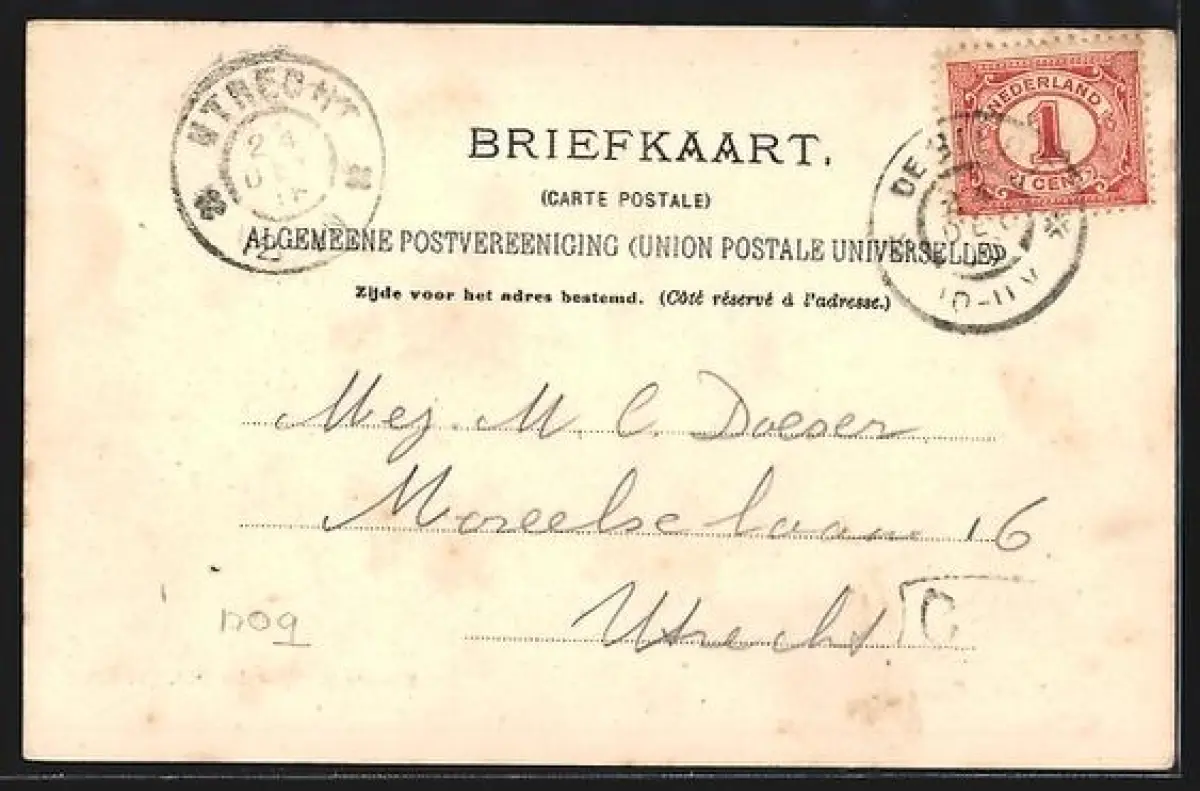 UTRECHT
24
DEC
NEDERLAND
1
1 CENT
DE
DEC
10-11V
BRIEFKAART.
(CARTE POSTALE)
ALGEMEENE POSTVEREENIGING (UNION POSTALE UNIVERSELLE)
Zijde voor het adres bestemd. (Côté réservé à l'adresse.)
Mej. M. C. Doeser
Moreelse laan 16
Utrecht.
C